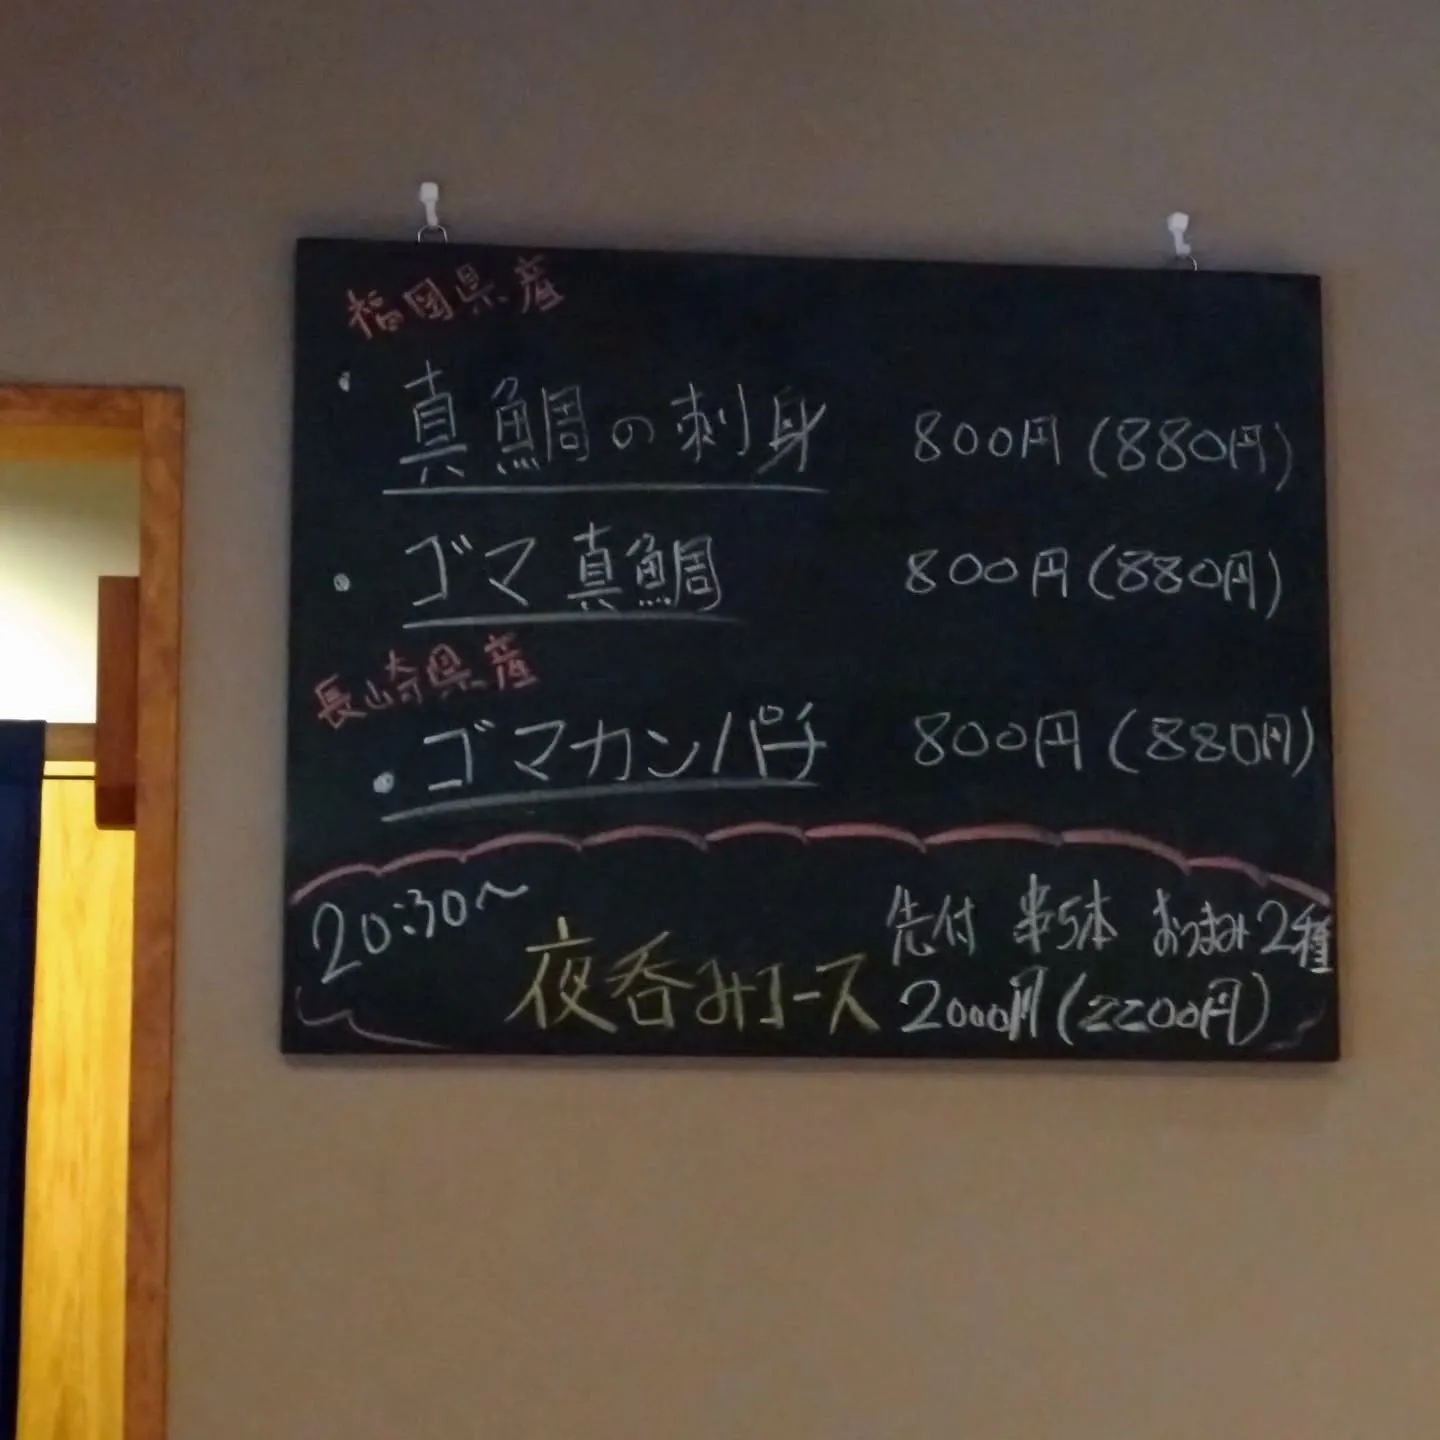 福岡県産
・真鯛の刺身 800円(880円)
・ゴマ真鯛 800円(880円)
長崎県産
・ゴマカンパチ 800円(880円)
20:30〜
先付 串5本 おつまみ2種
夜呑みコース 2000円(2200円)